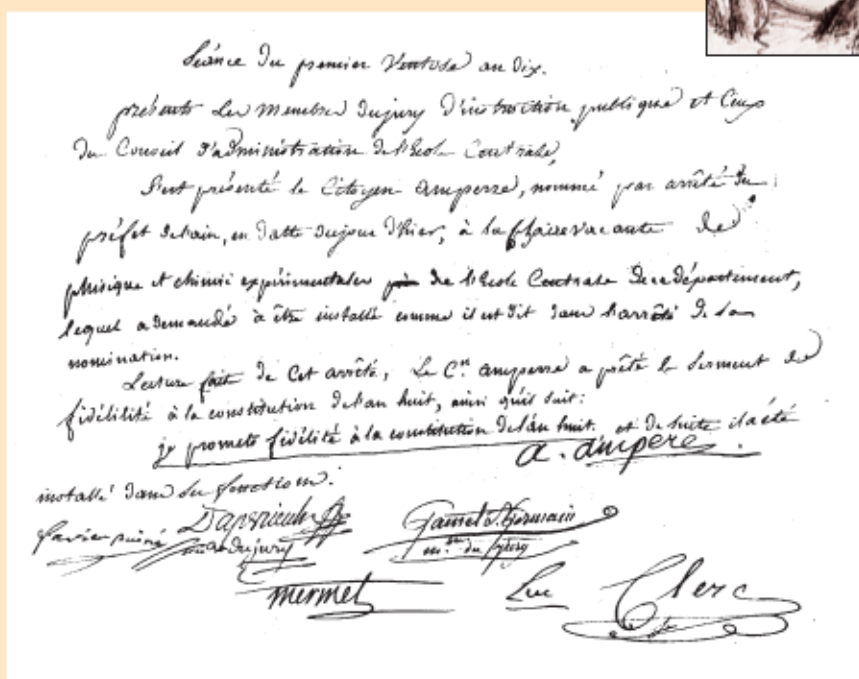 Séance du premier Ventose an dix.
présents les membres du jury d'instruction publique et ceux
du Conseil d'administration de l'école Centrale,
S'est présenté le Citoyen amperre, nommé par arrêté du
préfet de lain, en datte du jour d'hier, à la chaire vacante de
phisique et chimie expérimentales de l'école Centrale de ce département,
lequel a demandé à être installé comme il est dit dans l'arrêté de sa
nomination.
Lecture faite de Cet arrêté, Le C.en amperre a prêté le serment de
fidélité à la constitution de l'an huit, ainsi qu'il suit:
je promets fidélité à la constitution de l'an huit. et de suite il a été
a. ampere
installé dans ses fonctions.
du jury
m.bre du jury
mermet
Luc Clerc